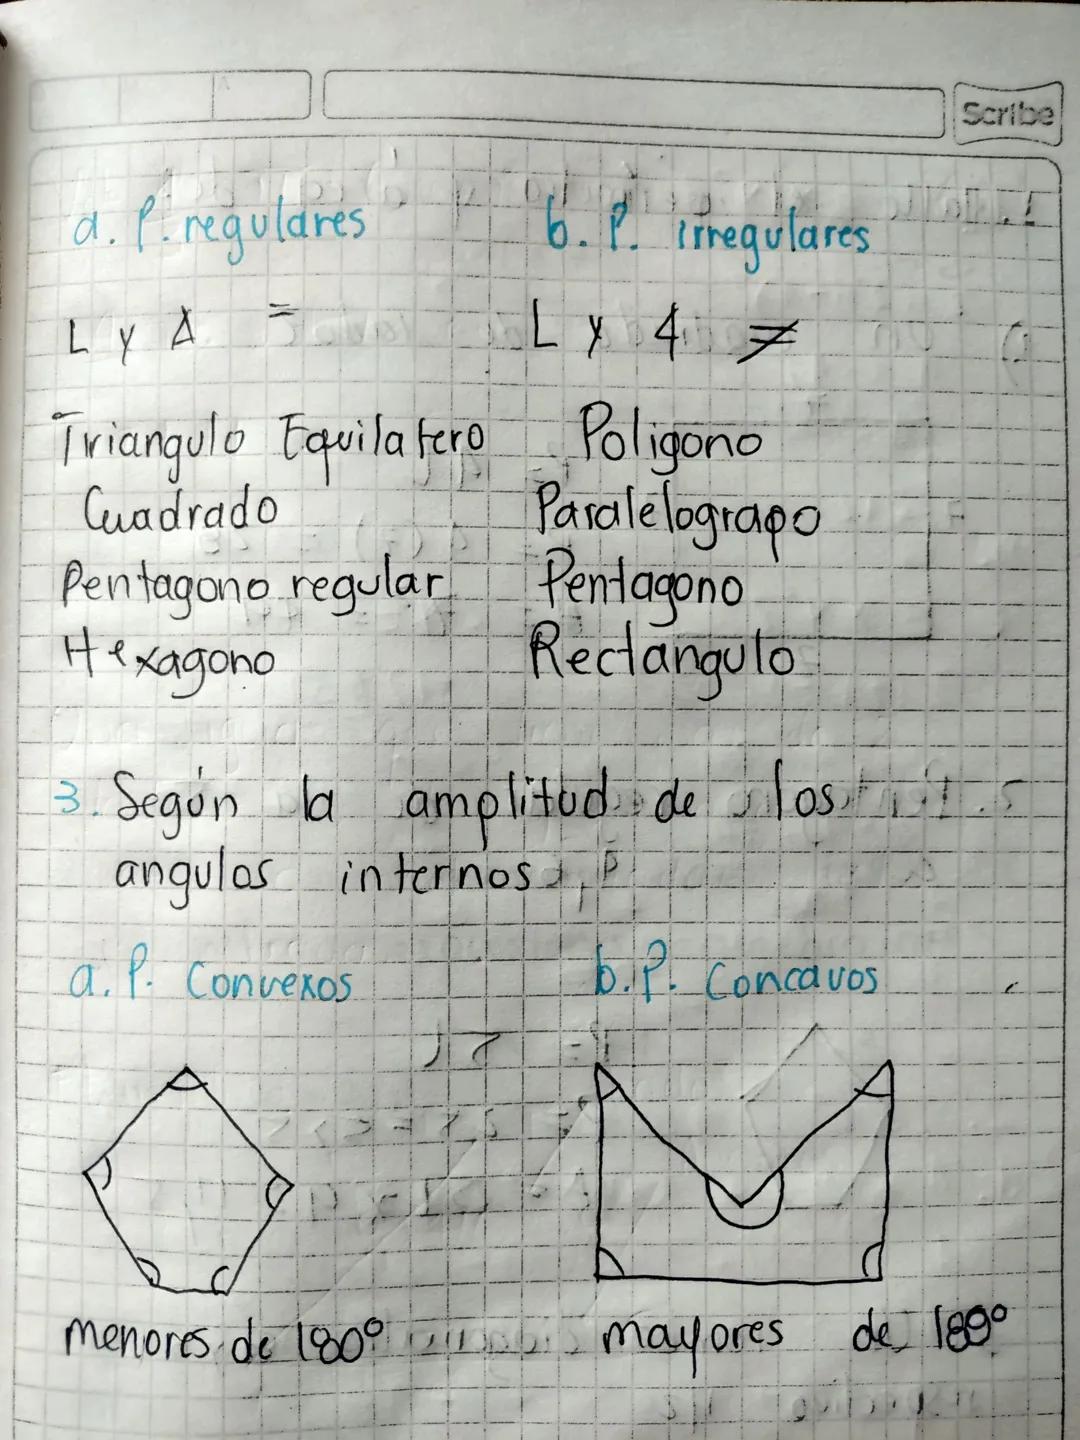 Scribe
a. P. regulares
b. P. irregulares
L y ∆ =
L y 4 ≠
Triangulo Equilatero
Poligono
Cuadrado
Paralelograpo
Pentagono regular
Pentagono
Hexagono
Rectangulo
3. Según la amplitud de los
angulos internos
a. P. Convexos
b. P. Concavos
menores de 180°
mayores de 180°